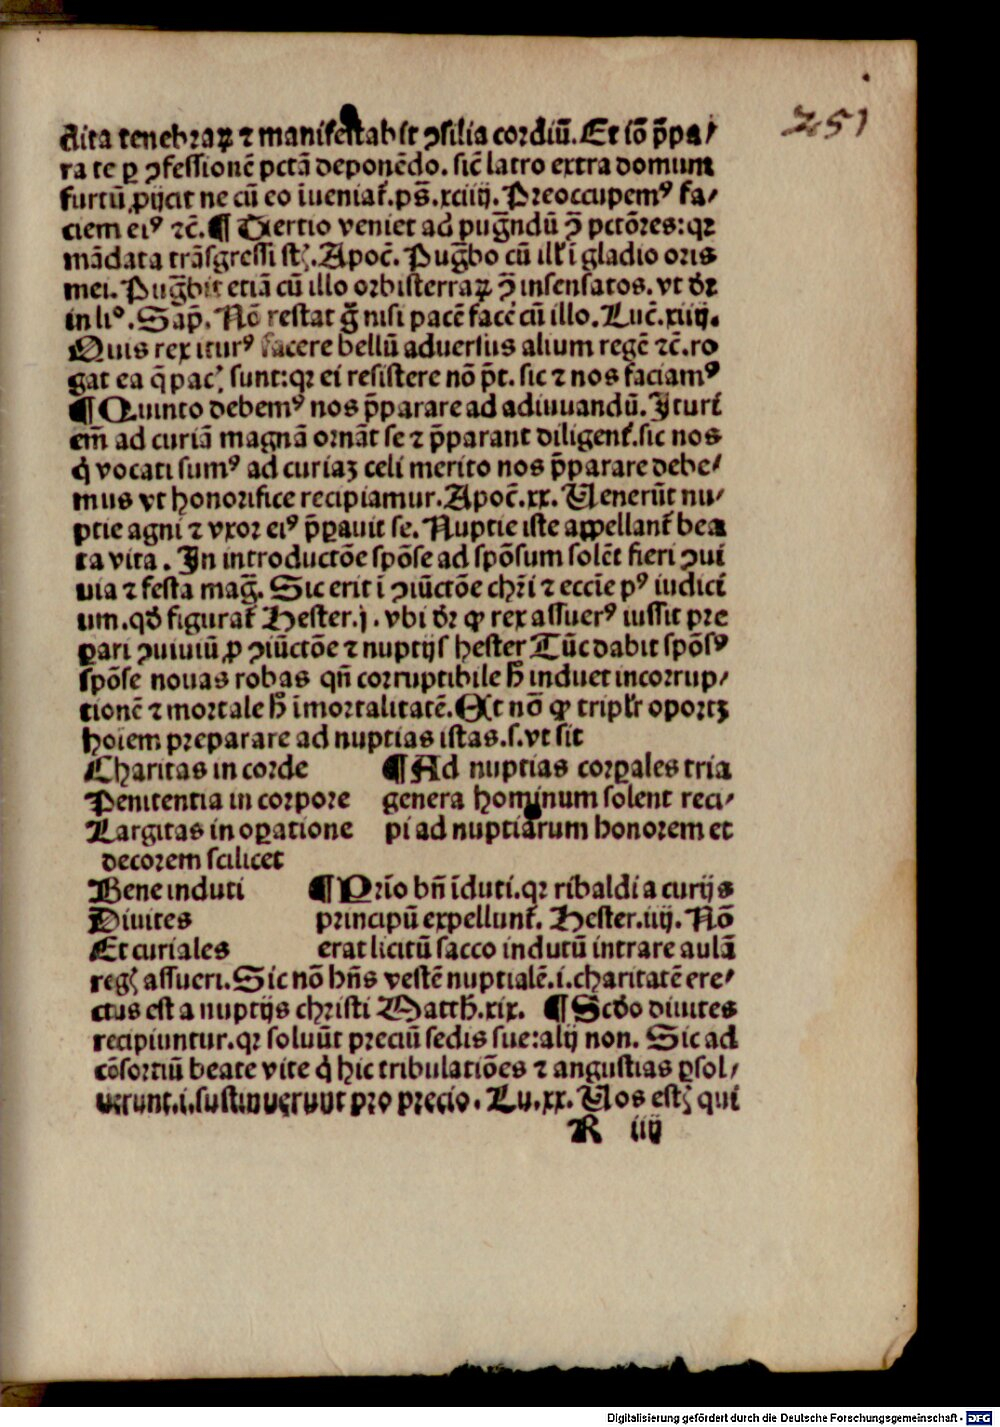 251
dita tenebraꝝ ⁊ manifestabit ꝯsilia cordiū. Et iō p̄pa⸗
ra te ꝑ ꝯfessionē pctā deponēdo. sic̄ latro extra domum
furtū ꝓijcit ne cū eo īueniat᷑. ps̄. xciiij. Preoccupemꝰ fa⸗
ciem eiꝰ ⁊c̄. ¶ Tertio veniet ad puḡndū ꝯ̄ pctōres: qꝛ
mādata trāsgressi st̄. Apoc̄. Puḡbo cū ill̓ i gladio oris
mei. Puḡbit etiā cū illo orbisterraꝝ ꝯ̄ insensatos. vt dr̄
in liᵒ. Sap̄. Nō restat g̊ nisi pacē facē cū illo. Luc̄. xiiij.
Quis rex iturꝰ facere bellū aduersus alium regē ⁊c̄. ro
gat ea q̄ pacꝭ sunt: qꝛ ei resistere nō p̄t. sic ⁊ nos faciamꝰ
¶ Quinto debemꝰ nos p̄parare ad adiuuandū. Ituri
em̄ ad curiā magnā ornāt se ⁊ p̄parant diligent᷑. sic nos
q̇ vocati sumꝰ ad curiaꝫ celi merito nos p̄parare debe⸗
mus vt honorifice recipiamur. Apoc̄. xx. Uenerūt nu⸗
ptie agni ⁊ vxor eiꝰ p̄ꝑauit se. Nuptie iste appellant᷑ bea
ta vita. In introductōe spōse ad spōsum solēt fieri ꝯui
uia ⁊ festa maḡ. Sic erit ī ꝯiūctōe chr̄i ⁊ eccīe pꝰ iudici
um. qd̄ figurat᷑ Hester. j. vbi dr̄ ꝙ rex assuerꝰ iussit pre
ꝑari ꝯuiuiū ꝓ ꝯiūctōe ⁊ nuptijs hester Tūc dabit spōsꝰ
spōse nouas robas qn̄ corruptibile h̄ induet incorrup⸗
tionē ⁊ mortale h̄ īmortalitatē. Et nō ꝙ tripl̓r oportꝫ
hoīem preparare ad nuptias istas. s. vt sit
Charitas in corde ¶ Ad nuptias corꝑales tria
Penitentia in corpore genera hominum solent reci⸗
Largitas in oꝑatione pi ad nuptiarum honorem et
decorem scilicet
Bene induti ¶ Prīo bn̄ īduti. qꝛ ribaldi a curijs
Diuites principū expellunt᷑. Hester. iiij. Nō
Et curiales erat licitū sacco indutū intrare aulā
regꝭ assueri. Sic nō hn̄s vestē nuptialē. i. charitatē ere⸗
ctus est a nuptijs christi Matth̄. xix. ¶ Scd̄o diuites
recipiuntur. qꝛ soluūt preciū sedis sue: alij non. Sic ad
cōsortiū beate vite q̇ hic tribulatiōes ⁊ angustias ꝑsol⸗
uerunt. i. sustinuerunt pro precio. Lu. xx. Uos estꝭ qui
R iiij
Digitalisierung gefördert durch die Deutsche Forschungsgemeinschaft - DFG